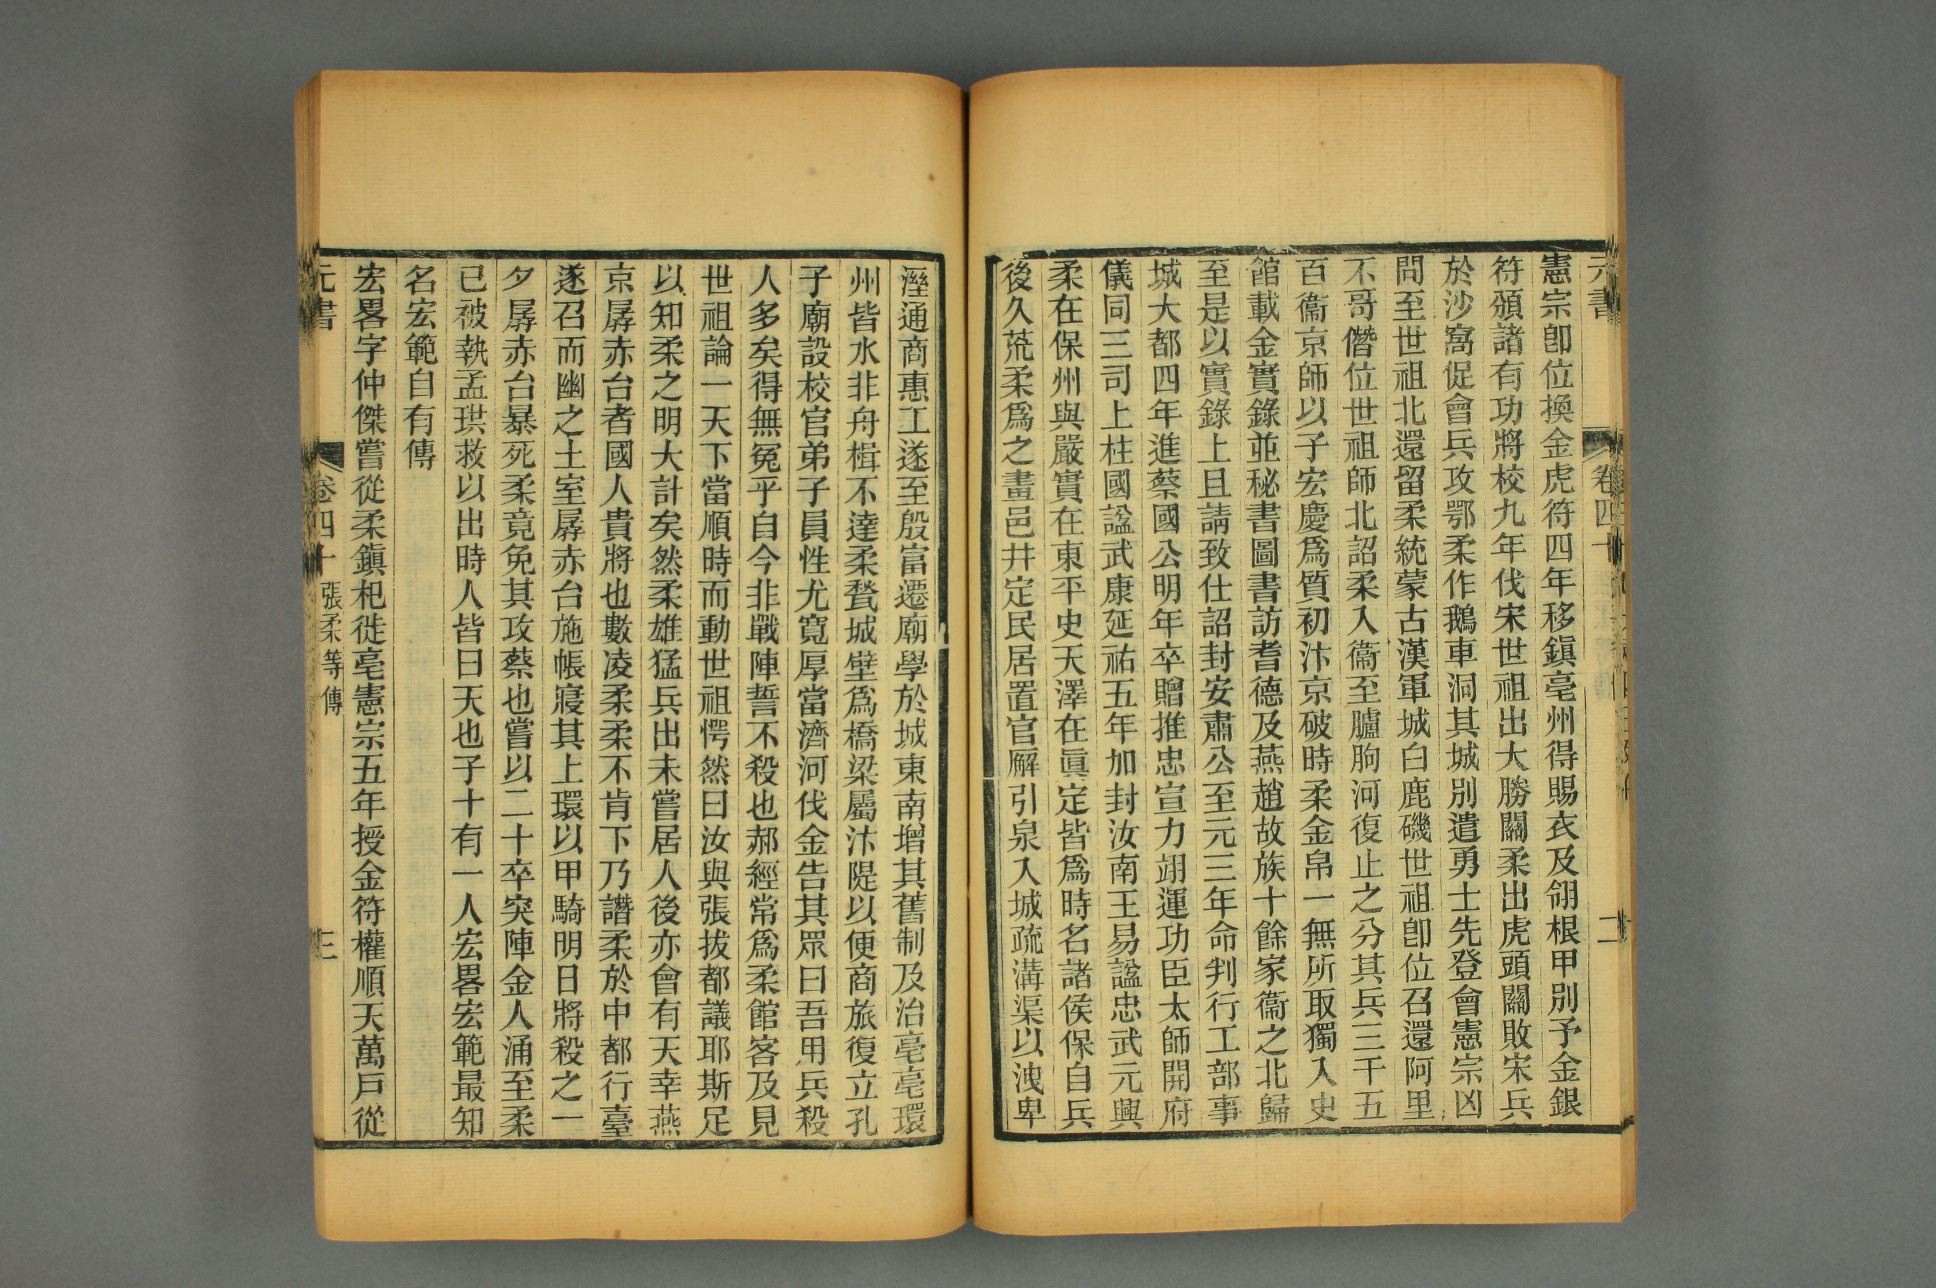 元書
卷四十
二
憲宗卽位換金虎符四年移鎭亳州得賜衣及翎根甲別予金銀
符頒諸有功將校九年伐宋世祖出大勝關柔出虎頭關敗宋兵
於沙窩促會兵攻鄂柔作鵝車洞其城別遣勇士先登會憲宗凶
問至世祖北還留柔統蒙古漢軍城白鹿磯世祖卽位召還阿里
不哥僭位世祖師北詔柔入衞至臚朐河復止之分其兵三千五
百衞京師以子宏慶爲質初汴京破時柔金帛一無所取獨入史
館載金實錄並秘書圖書訪耆德及燕趙故族十餘家衞之北歸
至是以實錄上且請致仕詔封安肅公至元三年命判行工部事
城大都四年進蔡國公明年卒贈推忠宣力翊運功臣太師開府
儀同三司上柱國諡武康延祐五年加封汝南王易諡忠武元興
柔在保州與嚴實在東平史天澤在眞定皆爲時名諸侯保自兵
後久荒柔爲之畫邑井定民居置官廨引泉入城疏溝渠以洩卑
溼通商惠工遂至殷富遷廟學於城東南增其舊制及治亳亳環
州皆水非舟楫不達柔甃城壁爲橋梁屬汴隄以便商旅復立孔
子廟設校官弟子員性尤寬厚當濟河伐金告其眾曰吾用兵殺
人多矣得無冤乎自今非戰陣誓不殺也郝經常爲柔館客及見
世祖論一天下當順時而動世祖愕然曰汝與張拔都議耶斯足
以知柔之明大計矣然柔雄猛兵出未嘗居人後亦會有天幸燕
京孱赤台者國人貴將也數凌柔柔不肯下乃譖柔於中都行臺
遂召而幽之土室孱赤台施帳寢其上環以甲騎明日將殺之一
夕孱赤台暴死柔竟免其攻蔡也嘗以二十卒突陣金人涌至柔
已被執孟珙救以出時人皆曰天也子十有一人宏畧宏範最知
名宏範自有傳
宏畧字仲傑嘗從柔鎭杞徙亳憲宗五年授金符權順天萬戶從
元書
卷四十
張柔等傳
三